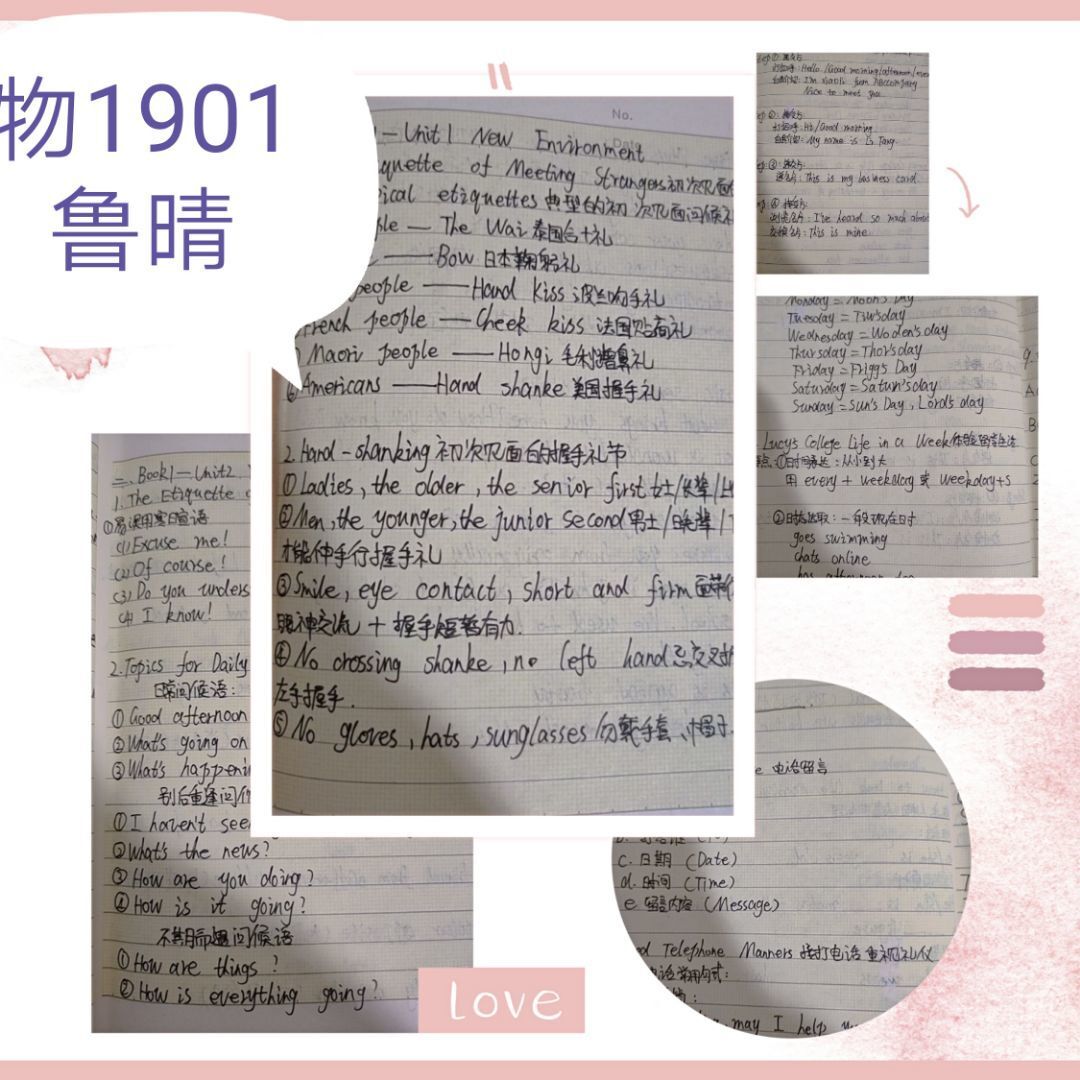 物1901
鲁晴
No.
Unit 1 New Environment
quette of Meeting Strangers初次见面
ical etiquettes 典型的初次见面问候
ple — The Wai 泰国合十礼
— Bow 日本鞠躬礼
people — Hand kiss 波兰吻手礼
French people — Cheek kiss 法国贴面礼
Maori people — Hongi 毛利碰鼻礼
⑥Americans — Hand shanke 美国握手礼
2. Hand-shanking 初次见面的握手礼节
①Ladies, the older, the senior first 女士/长辈/上
②Men, the younger, the junior second 男士/晚辈/
才能伸手行握手礼
③Smile, eye contact, short and firm 面带
眼神交流 + 握手短暂有力.
④No crossing shanke, no left hand 忌交叉
左手握手.
⑤No gloves, hats, sunglasses 勿戴手套、帽子
二. Book1—Unit2.
1. The Etiquette
①易误用寒暄语
(1) Excuse me!
(2) Of course!
(3) Do you unders
(4) I know!
2. Topics for Daily
日常问候语:
① Good afternoon
② What's going on
③ What's happenin
别后重逢问
① I haven't see
② What's the news?
③ How are you doing?
④ How is it going?
不期而遇问候语
① How are things?
② How is everything going?
打招呼: Hello/Good morning/afternoon/
Nice to meet you.
打招呼: Hi/Good morning.
自我介绍: My name is Tang.
递名片: This is my business card.
浏览名片: I've heard so much about
交换名片: This is mine
Monday = Moon's Day
Tuesday = Tiw'sday
Wednesday = Woden's day
Thursday = Thor'sday
Friday = Frigg's Day
Saturday = Saturn'sday
Sunday = Sun's Day, Lord's day
Lucy's College Life in a Week 体验留学生活
①时间表达: 从小到大
用 every + weekday 或 weekday+s
②时态选取: 一般现在时
goes swimming
chats online
e 电话留言
c. 日期 (Date)
d. 时间 (Time)
e 留言内容 (Message)
Telephone Manners 接打电话重视礼仪
电话常用句式:
may I help
Love